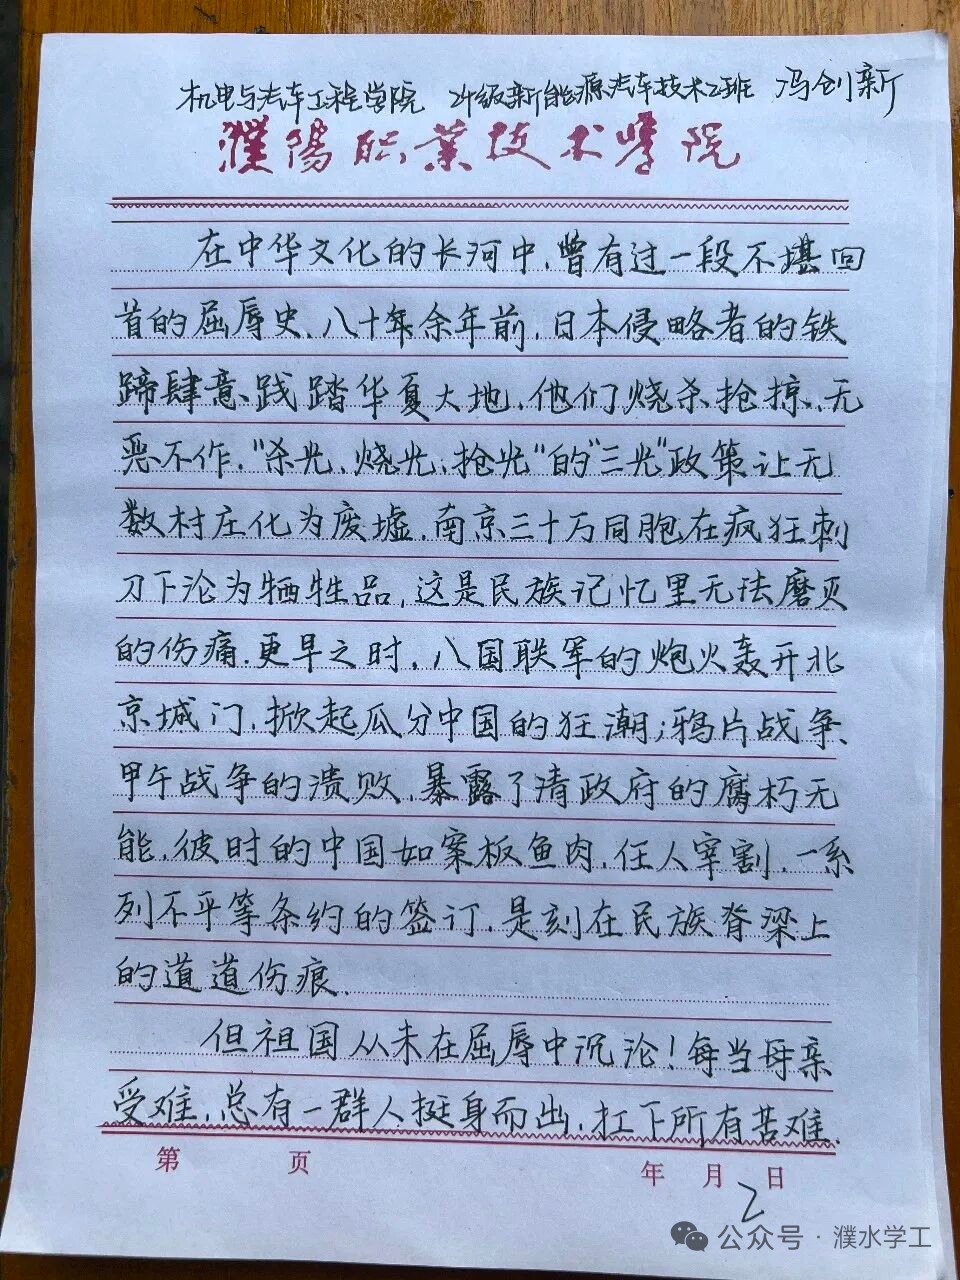 机电与汽车工程学院 24级新能源汽车技术2班 冯创新
濮陽职業技术学院
在中华文化的长河中,曾有过一段不堪回
首的屈辱史,八十年余年前,日本侵略者的铁
蹄肆意践踏华夏大地,他们烧杀抢掠,无
恶不作,"杀光、烧光、抢光"的"三光"政策让无
数村庄化为废墟,南京三十万同胞在疯狂刺
刀下沦为牺牲品,这是民族记忆里无法磨灭
的伤痛.更早之时,八国联军的炮火轰开北
京城门,掀起瓜分中国的狂潮;鸦片战争、
甲午战争的溃败,暴露了清政府的腐朽无
能,彼时的中国如案板鱼肉,任人宰割,一系
列不平等条约的签订,是刻在民族脊梁上
的道道伤痕.
但祖国从未在屈辱中沉沦!每当母亲
受难,总有一群人挺身而出,扛下所有苦难.
第 页 年 月 日
2
公众号·濮水学工